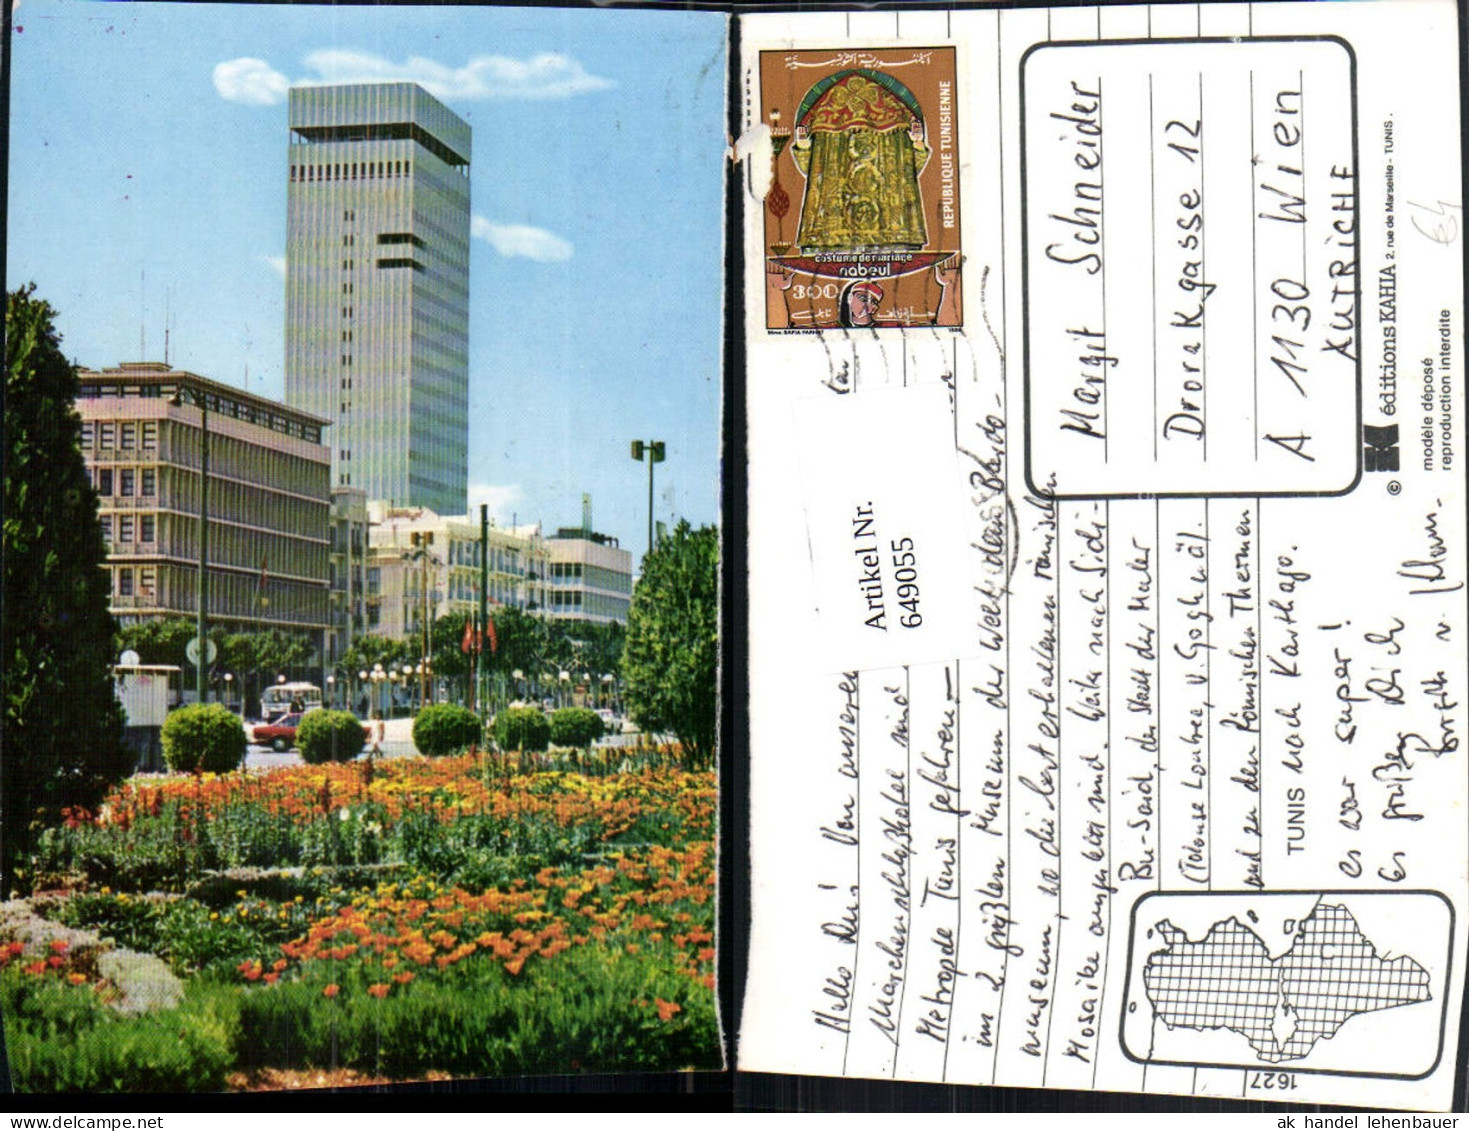 الجمهورية التونسية
REPUBLIQUE TUNISIENNE
costume de mariage
nabeul
300
Mme. SAFIA FARHAT
Artikel Nr.
649055
Hallo Du! Von unserer
sind
Metropole Tunis gefahren –
im 2. größten Museum der Welt, dem Bardo-
museum, wo die best erhaltenen römischen
Mosaike sind. Weiter nach Sidi-
Bu-Said, der Stadt der Maler
(Toulouse Loutrec, v. Gogh u. äl.
und zu den Römischen Thermen
TUNIS nach Karthago.
es war super!
Es grüßt Dich
Margit Schneider
Dvorakgasse 12
A 1130 Wien
AUTRICHE
© éditions KAHIA 2. rue de Marseille - TUNIS.
modèle déposé
reproduction interdite
64
1627
ak handel lehenbauer